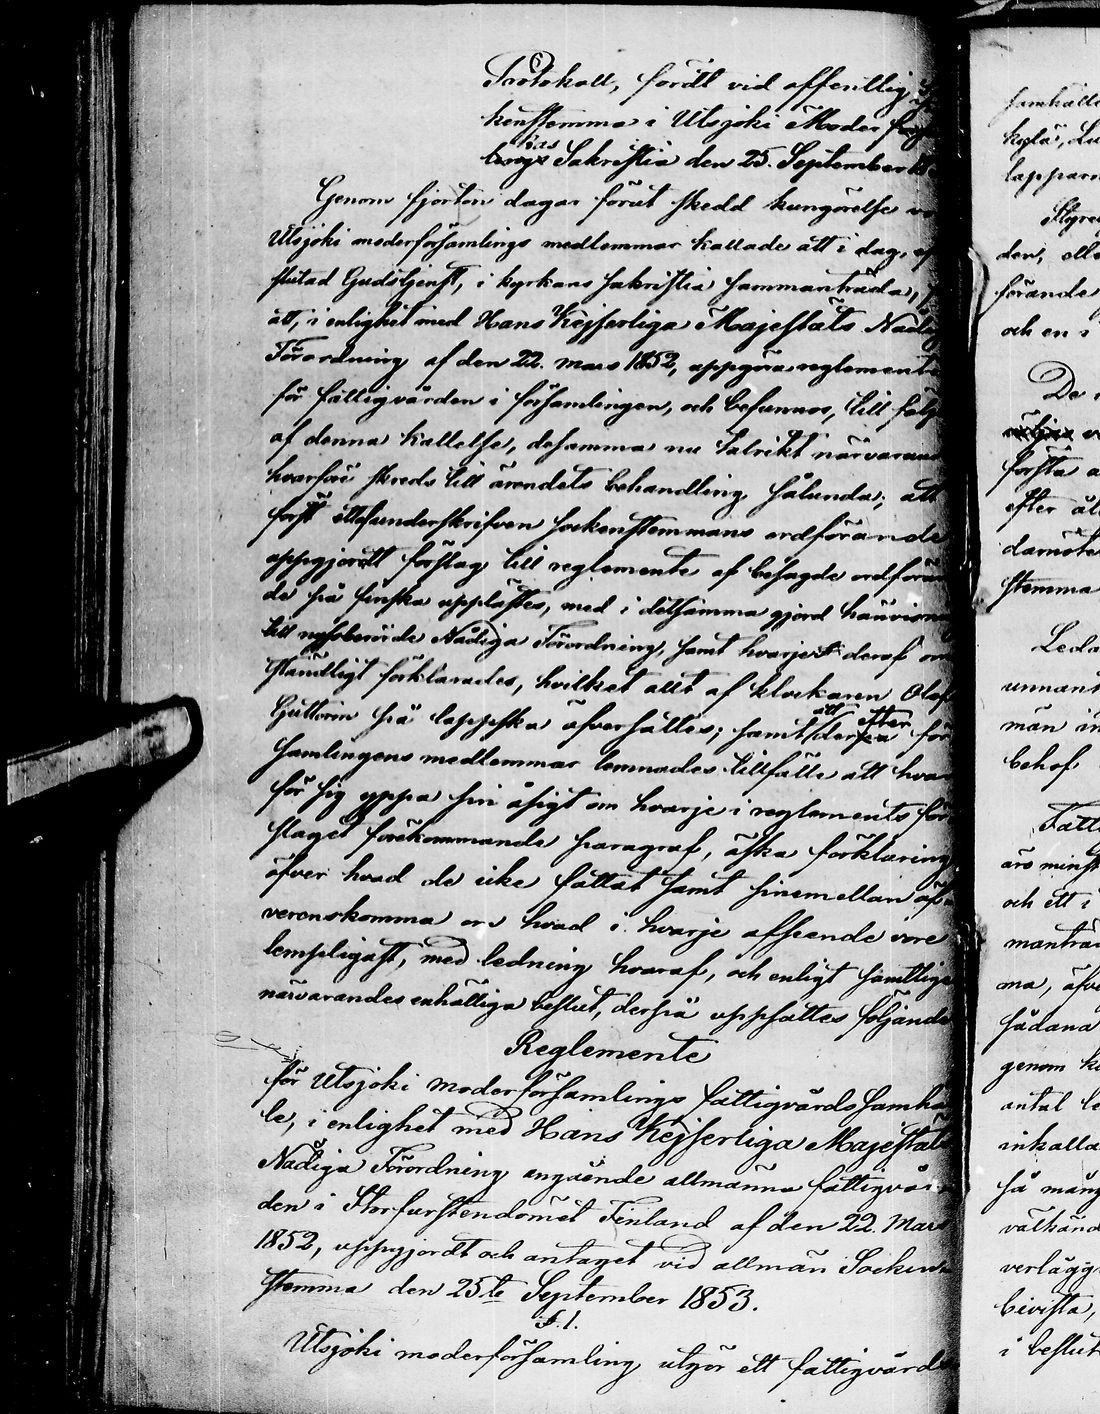 Protokoll, fördt vid offentlig
kenstemma i Utsjoki Moder
kas Sakristia den 25. September
Genom fjorton dagar förut skedd kungörelse
Utsjoki moderförsamlings medlemmar kallade att i dag, ef
slutad Gudstjenst, i kyrkans sakristia sammanträda,
att, i enlighet med Hans Kejserliga Majestäts Nådig
Förordning af den 22. mars 1852, uppgöra reglemente
för fattigvården i församlingen, och befunnos, till följd
af denna kallelse, desamma nu talrikt närvarand
hvarföre skreds till ärendets behandling sålunda; att
först sockenstemmans ordförande
uppgjordt förslag till reglemente af besagde ordföran
de på finska upplästes, med i detsamma gjord hänvisn
till Nådiga Förordning, samt hvarje deraf om
ständligt förklarades, hvilket allt af klockaren Olof
Guttorm på lappska öfversattes; samt att derefter för
samlingens medlemmar lemnades tillfälle att hvar
för sig yppa sin åsigt om hvarje i reglements för
slaget förekommande paragraf, äska förklaring
öfver hvad de icke fattat samt sinemellan öf
verenskomma om hvad i hvarje afseende vore
lempligast, med ledning hvaraf, och enligt samtlige
närvarandes enhälliga beslut, derpå uppsattes följande
Reglemente
för Utsjoki moderförsamlings fattigvårdssamhäl
le, i enlighet med Hans Kejserliga Majestäts
Nådiga Förordning angående allmänna fattigvår
den i Storfurstendömet Finland af den 22. Mars
1852, uppgjordt och antaget vid allmän Socken
stemma den 25te September 1853.
§. 1.
Utsjoki moderförsamling utgör ett fattigvårds
samhälle
kylä, Lu
lappar
Styre
den, elle
förande
och en
De
första a
efter
stemma
Leda
män in
behof
Fatti
äro minst
och ett i
manträd
ma, äfve
sådana
genom k
antal le
inkalla
så mång
välkänd
verlägg
bivista,
i beslut